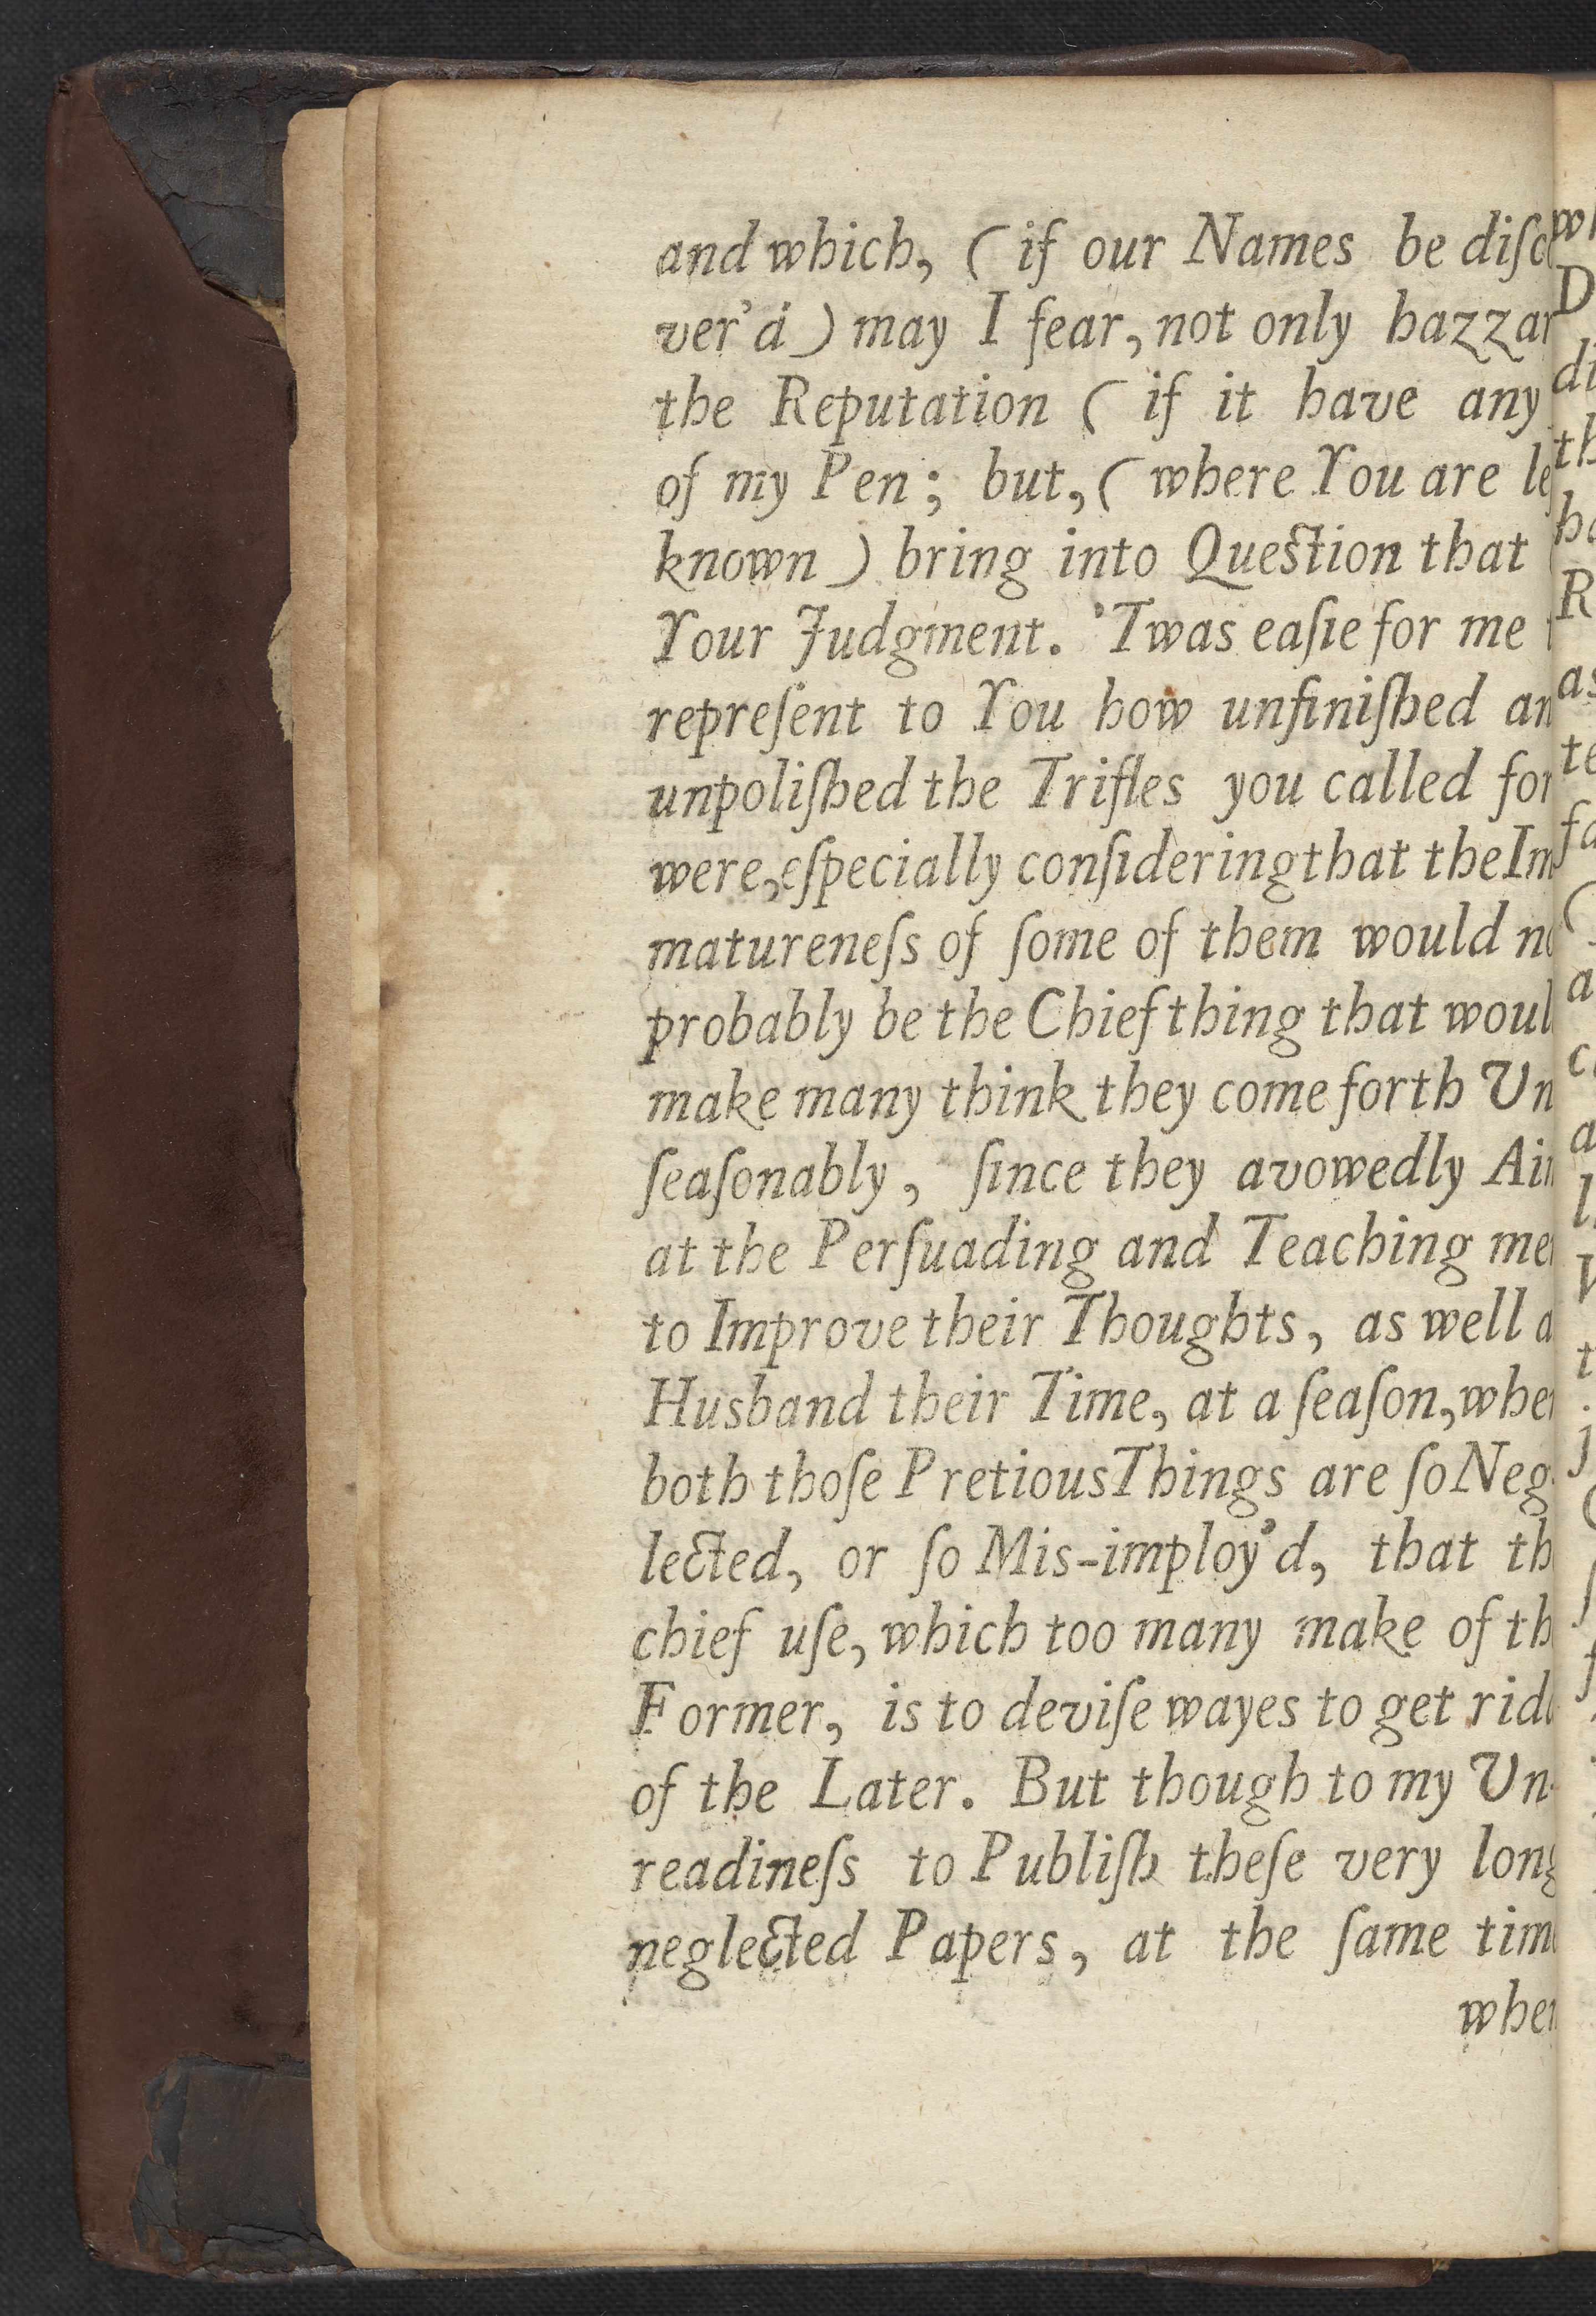 and which, ( if our Names be diſc
ver'd ) may I fear, not only hazzar
the Reputation ( if it have any
of my Pen; but, ( where You are le
known ) bring into Question that
Your Judgment. 'Twas eaſie for me
repreſent to You how unfiniſhed an
unpoliſhed the Trifles you called for
were, eſpecially conſidering that the Im
matureneſs of ſome of them would no
probably be the Chief thing that woul
make many think they come forth Un
ſeaſonably, ſince they avowedly Ai
at the Perſuading and Teaching me
to Improve their Thoughts, as well a
Husband their Time, at a ſeaſon, whe
both thoſe Pretious Things are ſo Neg
lected, or ſo Mis-imploy'd, that th
chief uſe, which too many make of th
Former, is to deviſe wayes to get rid
of the Later. But though to my Un-
readineſs to Publiſh theſe very long
neglected Papers, at the ſame tim
when